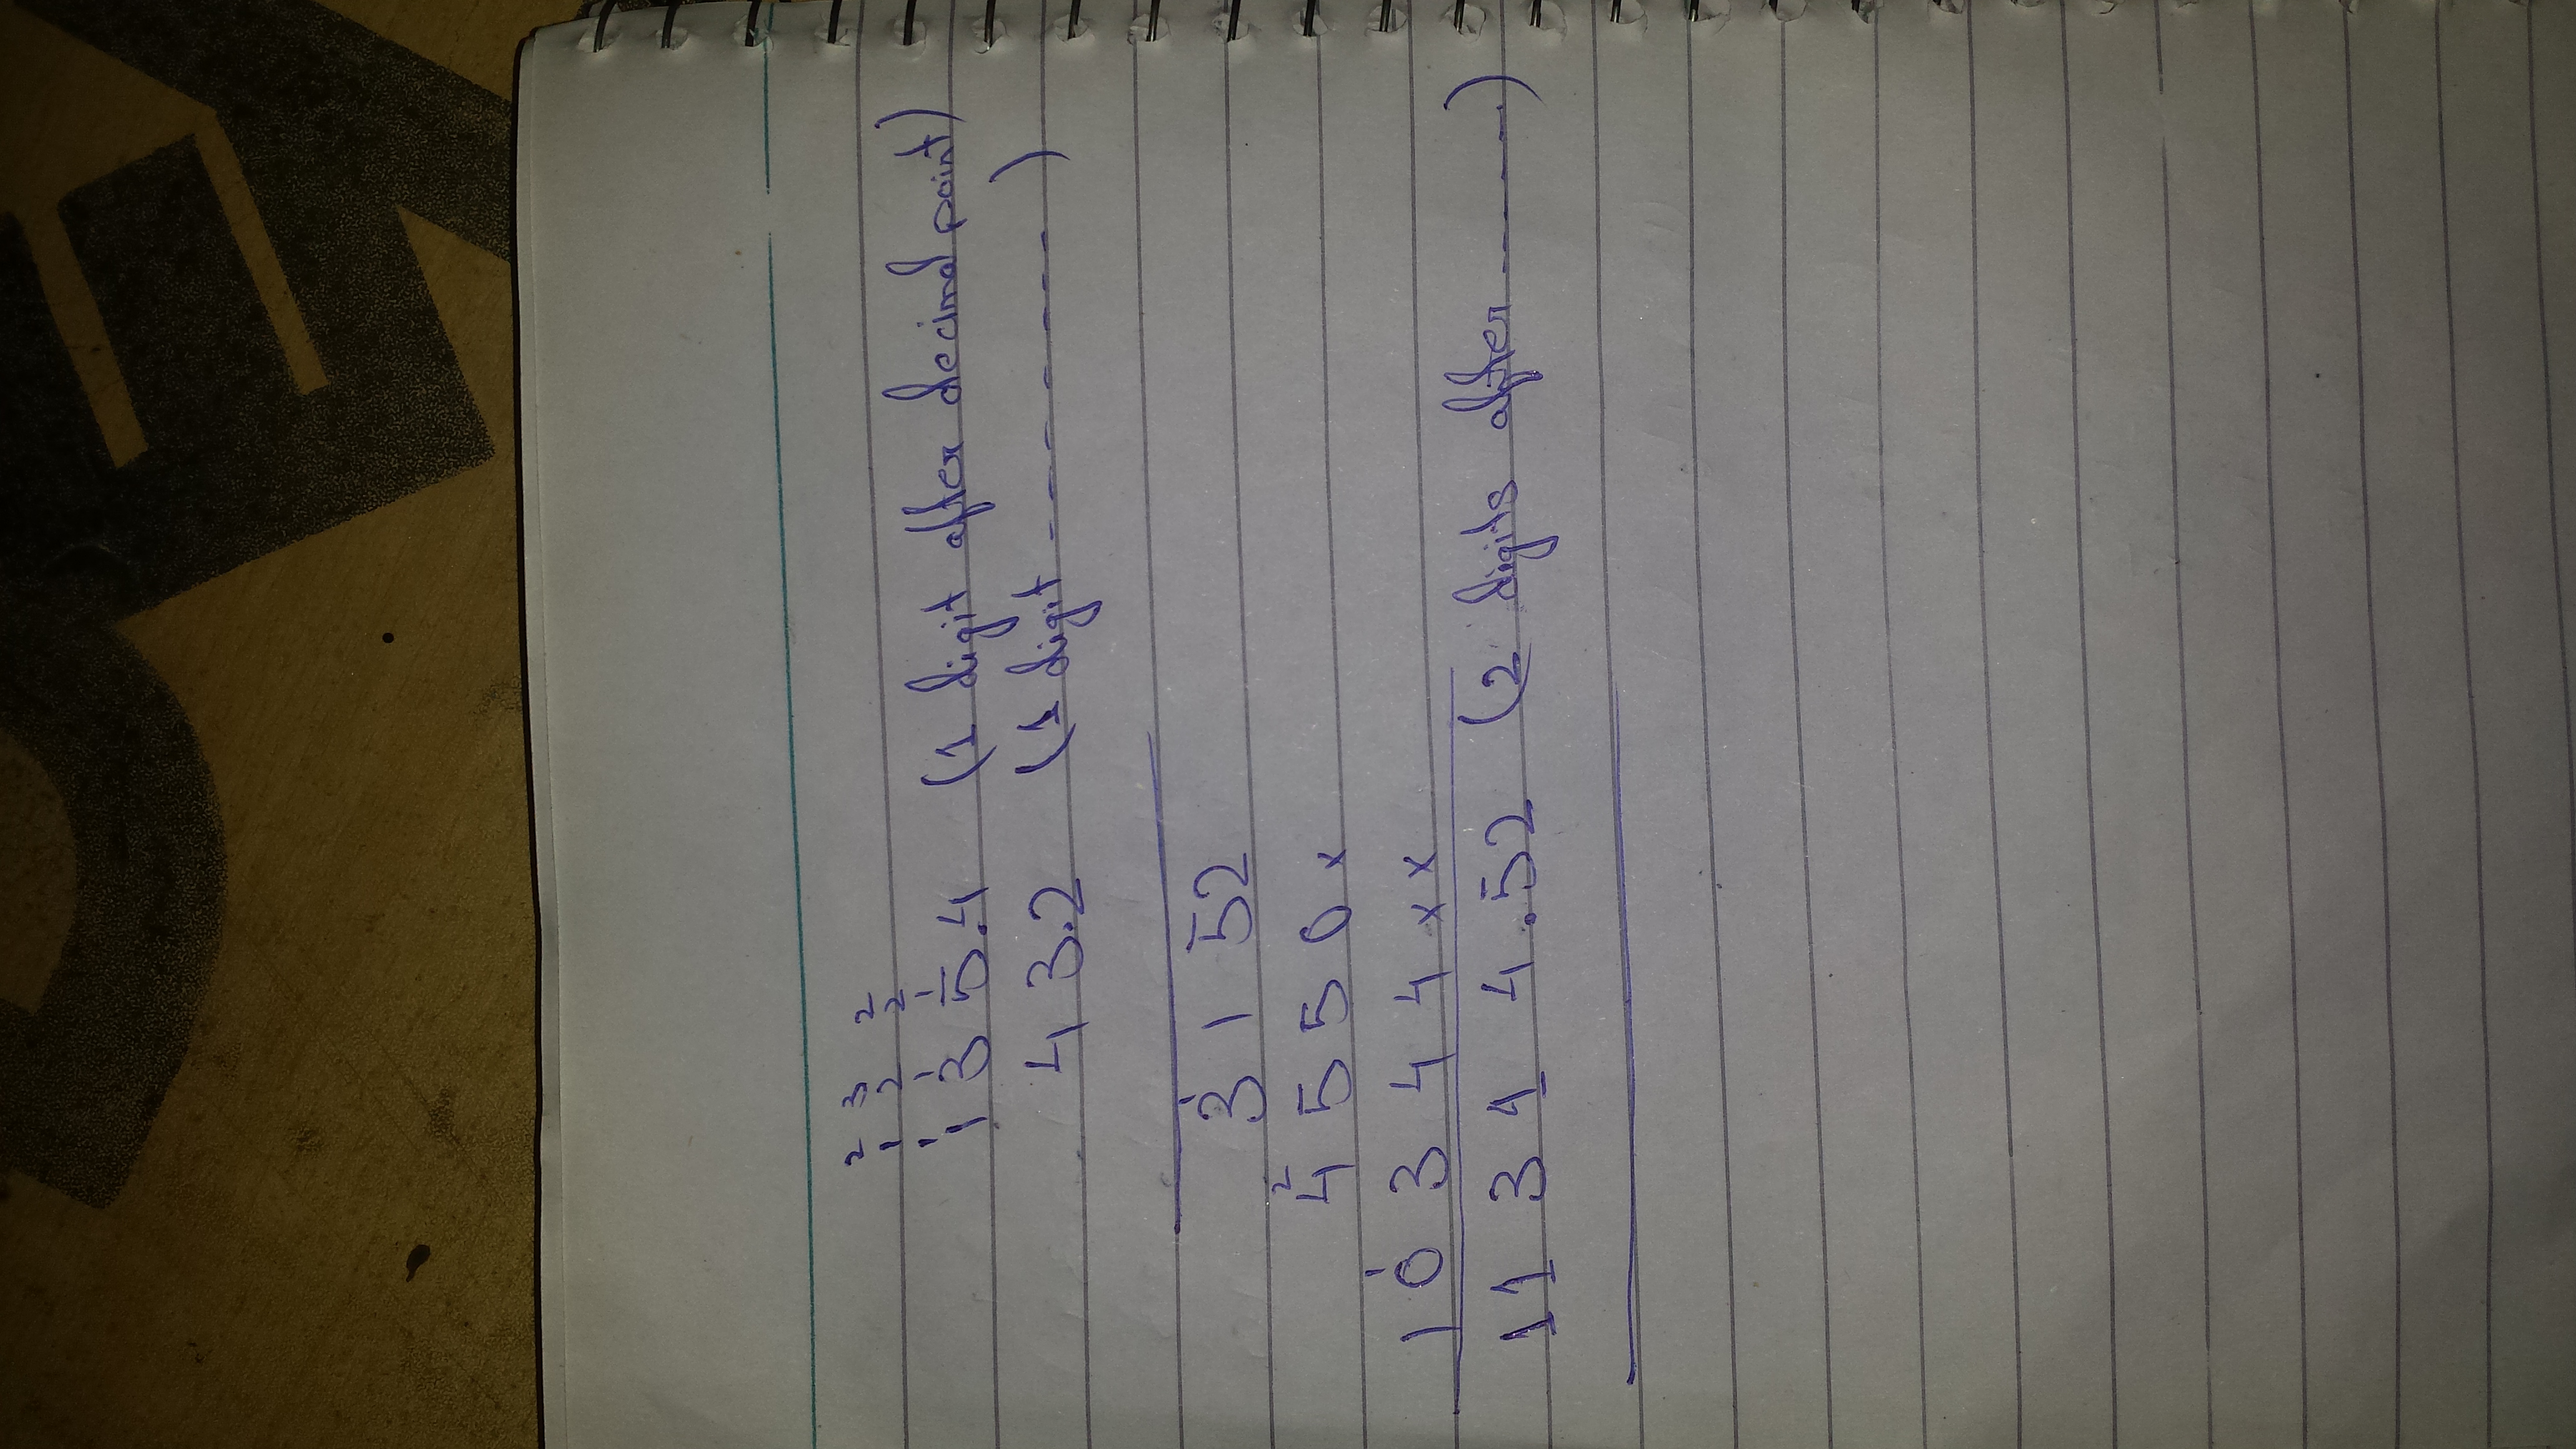 2 3 2
1 2 2
1 1 1
1 3 5.4 (1 digit after decimal point)
4 3.2 (1 digit --------)
1
3 1 52
2
4 5 5 0 x
1
1 0 3 4 4 x x
11 3 1 4.52 (2 digits after -----)